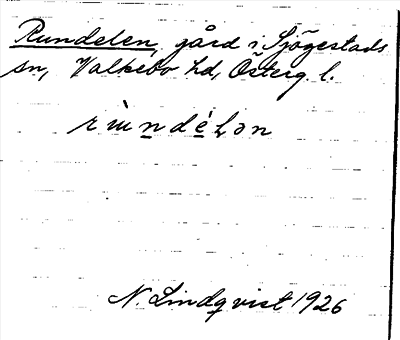 Rundelen, gård i Sjögestads
sn, Valkebo hd, Österg. l.
rùndélən
N. Lindqvist 1926